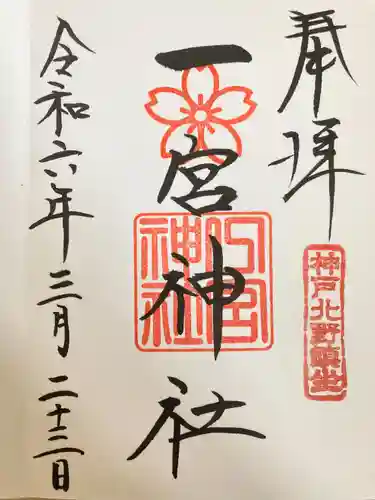 奉拝
神戸北野鎮坐
一宮神社
一宮神社
令和六年三月二十三日